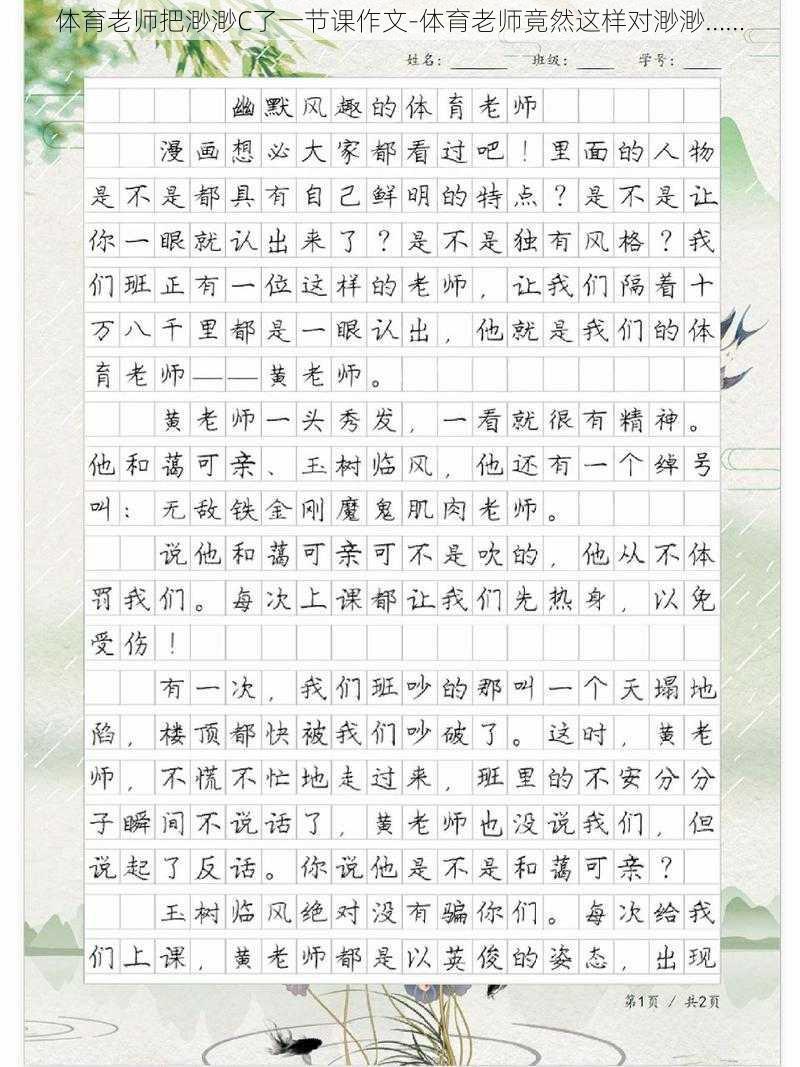 体育老师把渺渺C了一节课作文-体育老师竟然这样对渺渺……
姓名：______ 班级：____ 学号：____
幽默风趣的体育老师
漫画想必大家都看过吧！里面的人物
是不是都具有自己鲜明的特点？是不是让
你一眼就认出来了？是不是独有风格？我
们班正有一位这样的老师，让我们隔着十
万八千里都是一眼认出，他就是我们的体
育老师——黄老师。
黄老师一头秀发，一看就很有精神。
他和蔼可亲、玉树临风，他还有一个绰号
叫：无敌铁金刚魔鬼肌肉老师。
说他和蔼可亲可不是吹的，他从不体
罚我们。每次上课都让我们先热身，以免
受伤！
有一次，我们班吵的那叫一个天塌地
陷，楼顶都快被我们吵破了。这时，黄老
师，不慌不忙地走过来，班里的不安分分
子瞬间不说话了，黄老师也没说我们，但
说起了反话。你说他是不是和蔼可亲？
玉树临风绝对没有骗你们。每次给我
们上课，黄老师都是以英俊的姿态，出现
第1页 / 共2页